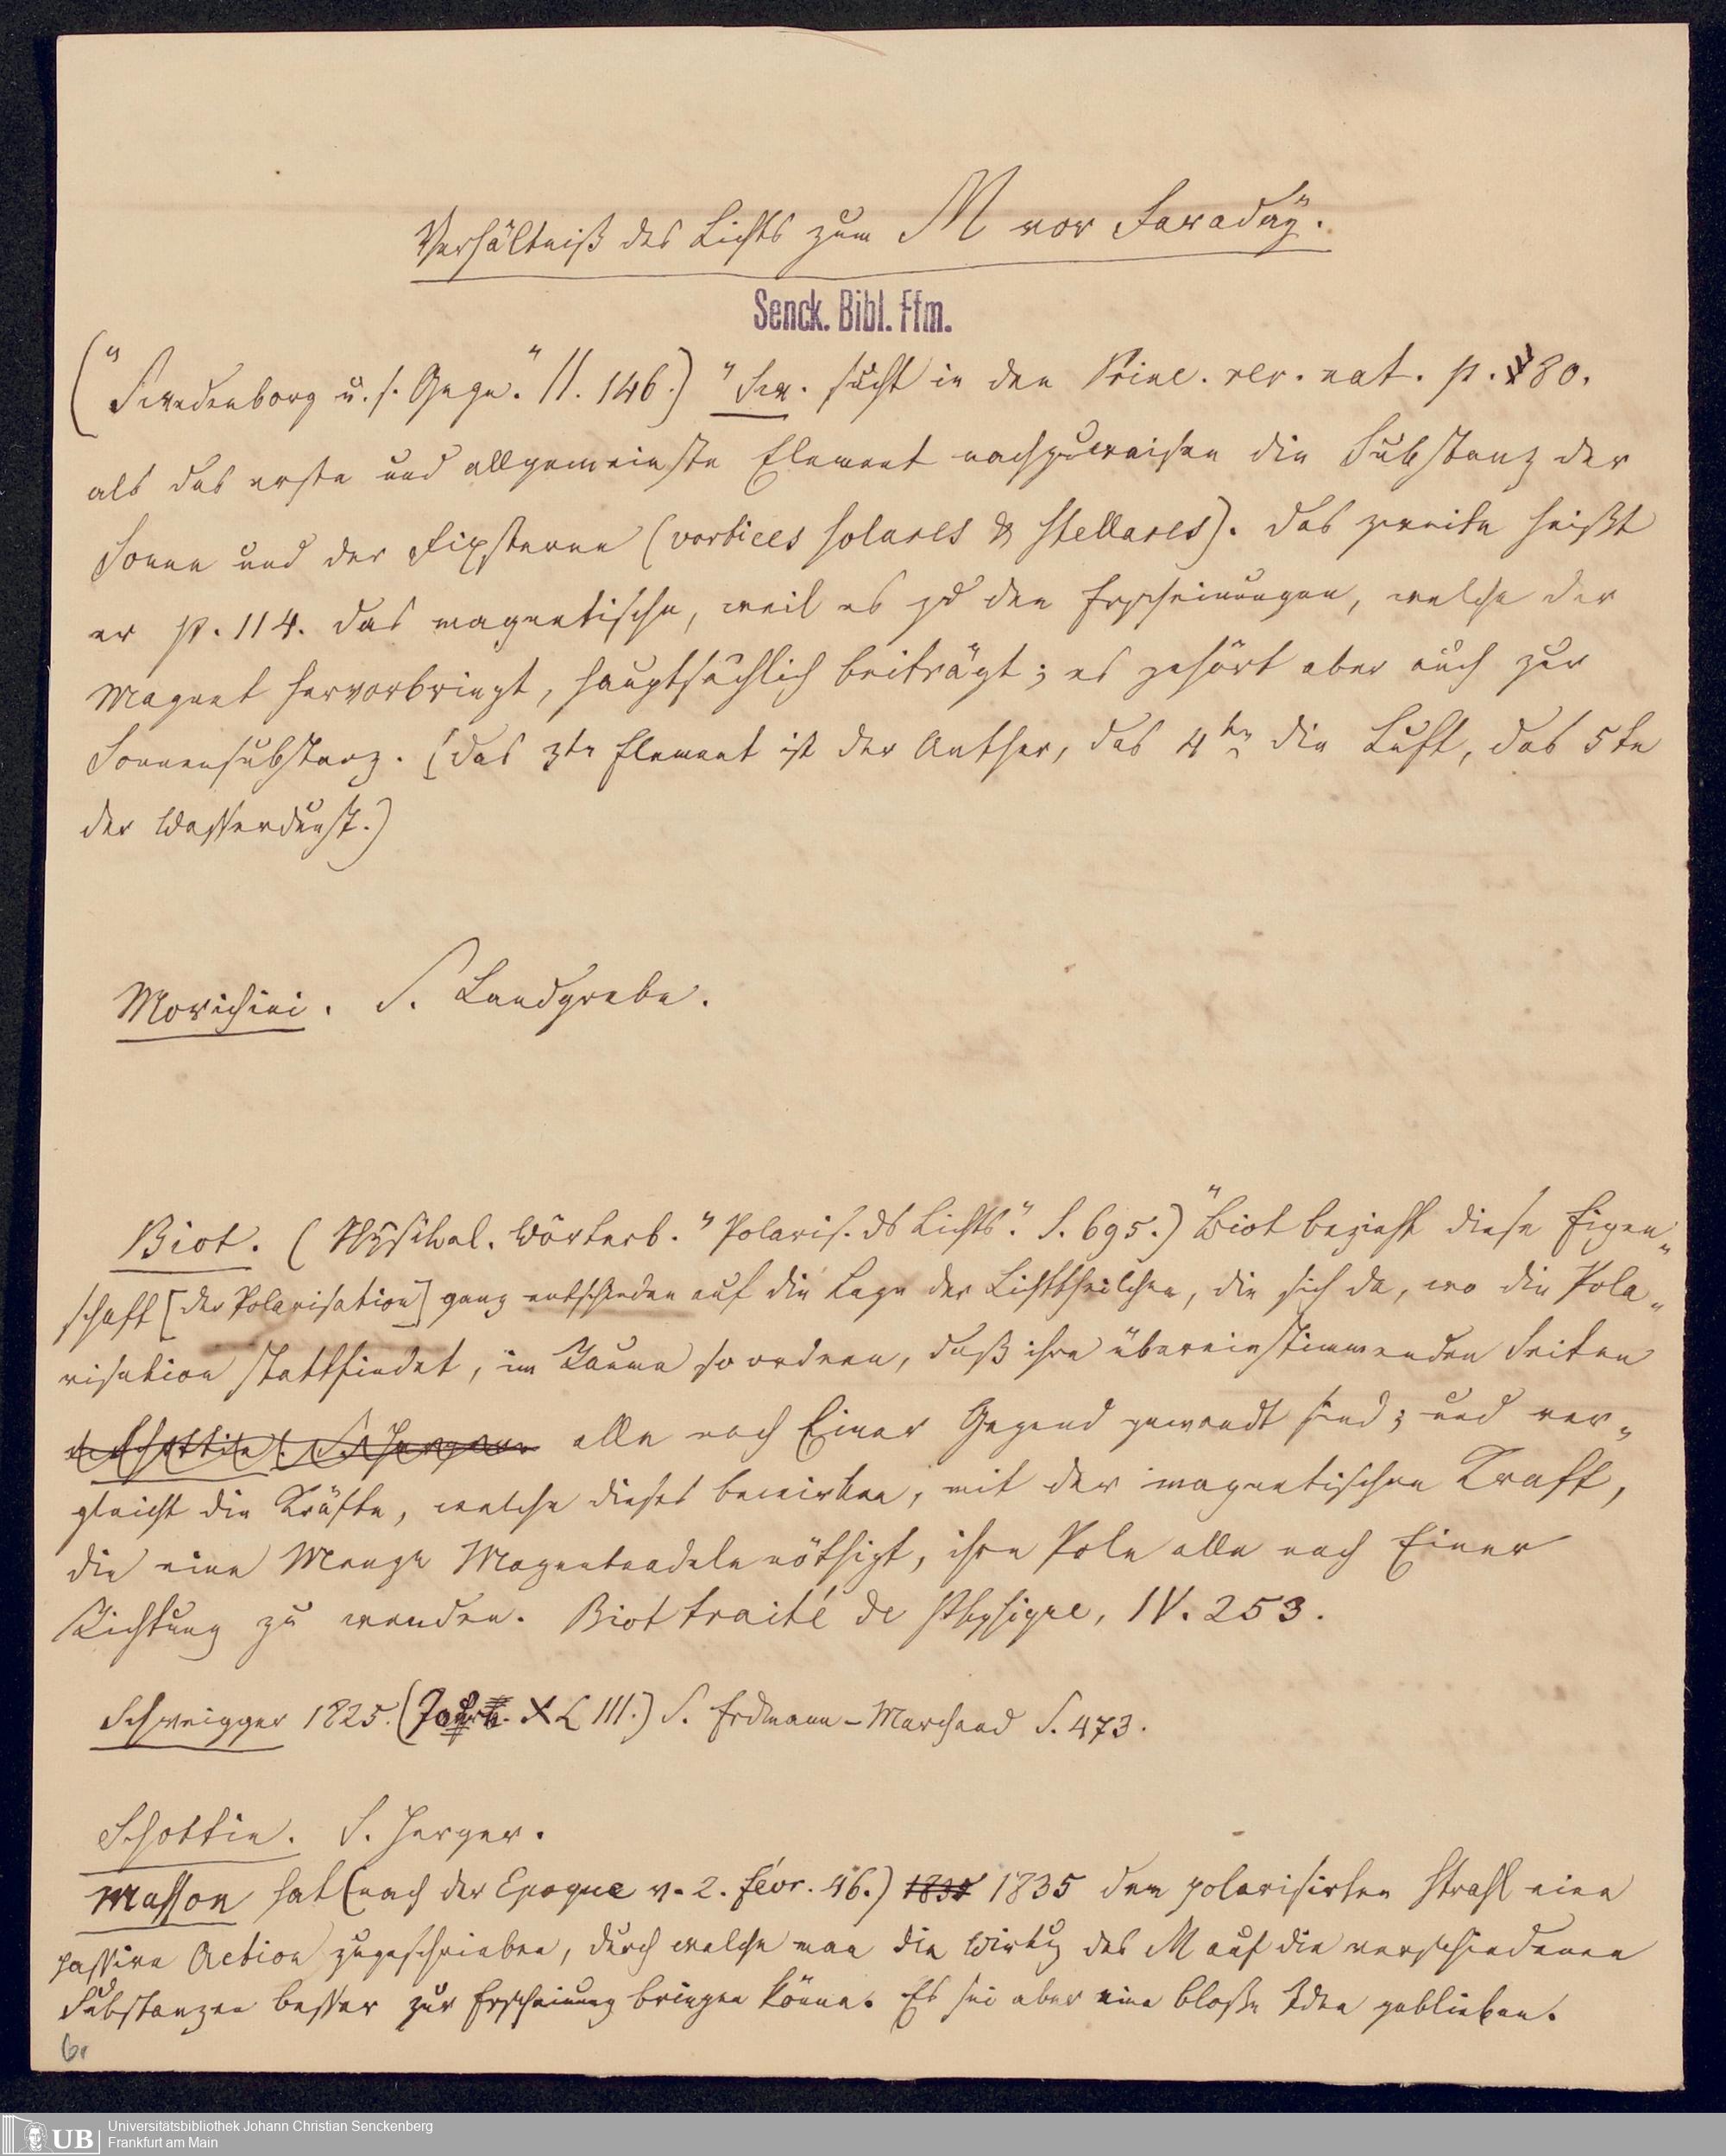 Verhältniß des Lichts zum M vor Faraday.
Senck. Bibl. Ffm.
("Swedenborg u. s. Gegn." II. 146.) "Sw. sucht in den Princ. rer. nat. p. 80.
als das erste und allgemeinste Element nachzuweisen die Substanz der
Sonne und der Fixsterne (vortices solares & stellares). Das zweite heißt
er p. 114. das magnetische, weil es zu den Erscheinungen, welche der
Magnet hervorbringt, hauptsächlich beiträgt; es gehört aber auch zur
Sonnensubstanz. (Das 3te Element ist der Aether, das 4te die Luft, das 5te
der Wasserdunst.)
Morichini. S. Landgrebe.
Biot. (Physikal. Wörterb. "Polaris. ds Lichts." S. 695.) "Biot bezieht diese Eigen„
schaft [der Polarisation] ganz entschieden auf die Lage der Lichttheilchen, die sich da, wo die Pola„
risation stattfindet, im Raume so ordnen, daß ihre übereinstimmenden Seiten
alle nach Einer Gegend gewandt sind; und ver„
gleicht die Kräfte, welche dieses bewirken, mit der magnetischen Kraft,
die eine Menge Magnetnadeln nöthigt, ihre Pole alle nach Einer
Richtung zu wenden. Biot traité de Physique, IV. 253.
Schweigger 1825. (Jahrb. XLIII.) S. Erdmann-Marchand S. 473.
Schottin. S. Herger.
Masson hat (nach der Epoque v. 2. févr. 46.) 1835 dem polarisirten Strahl eine
passive Action zugeschrieben, durch welche man die Wirkg des M auf die verschiedenen
Substanzen besser zur Erscheinung bringen könne. Es sei aber eine bloße Idee geblieben.
6.
UB
Universitätsbibliothek Johann Christian Senckenberg
Frankfurt am Main